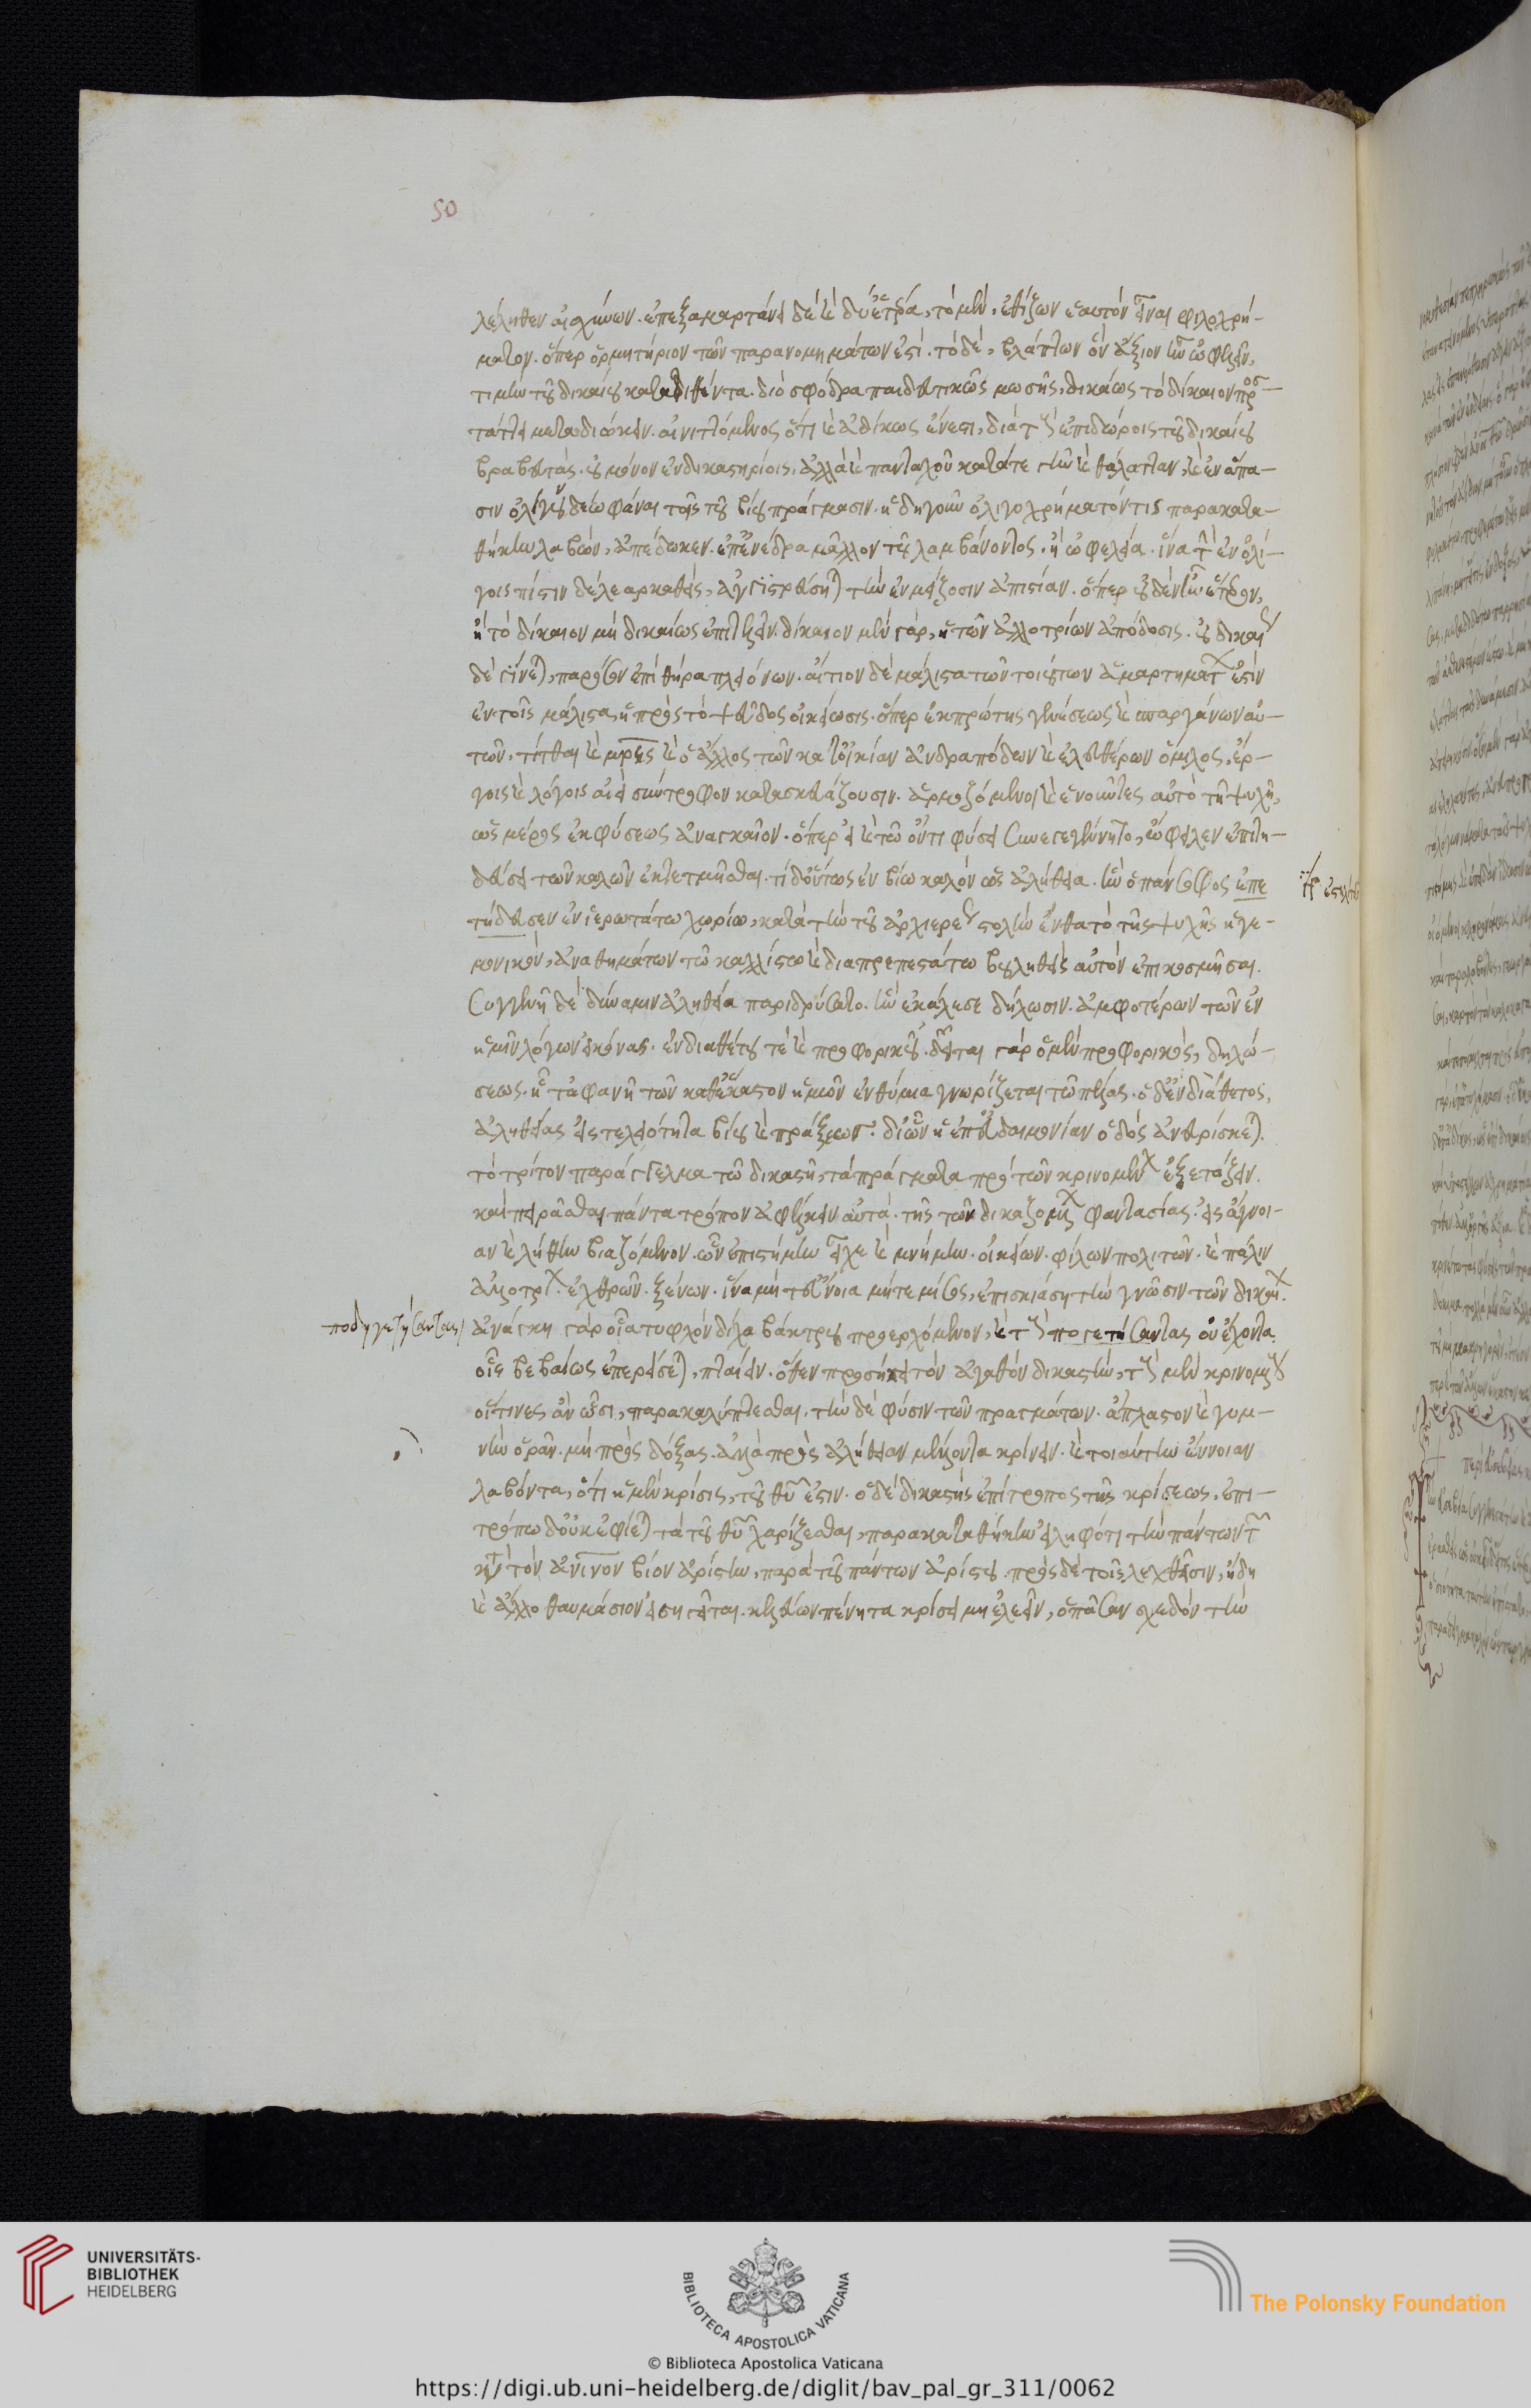 50
λέληθεν αἰσχύνων. ἐπεξαμαρτάνει δὲ καὶ δύ' ἕτερα, τὸ μὲν, ἐθίζων ἑαυτὸν εἶναι φιλοχρή-
ματον. ὅπερ ὁρμητήριον τῶν παρανομημάτων ἐστί. τὸ δὲ, βλάπτων ὃν ἄξιον ἦν ὠφελεῖν,
τιμὴν τοῦ δικαίου καταθέντα. διὸ σφόδρα παιδευτικῶς μωσῆς, δικαίως τὸ δίκαιον προσ-
τάττει μεταδιώκειν. αἰνιττόμενος ὅτι καὶ ἀδίκως ἔνεστι, διὰ τοὺς ἐπὶ δώροις τοῦ δικαίου
βραβευτάς. οὐ μόνον ἐν δικαστηρίοις, ἀλλὰ καὶ πανταχοῦ κατά τε γῆν καὶ θάλατταν, καὶ ἐν ἅπα-
σιν ὀλίγου δέω φάναι τοῖς τοῦ βίου πράγμασιν. ἤδη γοῦν ὀλιγοχρήματόν τις παρακατα-
θήκην λαβὼν, ἀπέδωκεν. ἐπ' ἐνέδρα μᾶλλον τοῦ λαμβάνοντος. ἢ ὠφελεία. ἵνα τὴν ἐν ὀλί-
γοις πίστιν δέλεαρ καθεὶς, ἀγκιστρεύσηται τὴν ἐν μείζοσιν ἀπιστίαν. ὅπερ οὐδὲν ἦν ἕτερον,
ἢ τὸ δίκαιον μὴ δικαίως ἐπιτελεῖν. δίκαιον μὲν γὰρ, ἡ τῶν ἀλλοτρίων ἀπόδοσις. οὐ δικαίως
δὲ γίνεται, παρόσον ἐπὶ θήρα πλειόνων. αἴτιον δὲ μάλιστα τῶν τοιούτων ἁμαρτημάτων ἐστὶν
ἐν τοῖς μάλιστα, ἡ πρὸς τὸ ψεῦδος οἰκείωσις. ὅπερ ἐκ πρώτης γενέσεως καὶ σπαργάνων αὐ-
τῶν, τίτθαι καὶ μητέρες καὶ ὁ ἄλλος τῶν κατ' οἰκίαν ἀνδραπόδων καὶ ἐλευθέρων ὅμιλος, ἔρ-
γοις καὶ λόγοις αἰεὶ σύντροφον κατασκευάζουσιν. ἁρμοζόμενοι καὶ ἑνοῦντες αὐτὸ τῆ ψυχῆ,
ὡς μέρος ἐκ φύσεως ἀναγκαῖον. ὅπερ εἰ καὶ τῶ ὄντι φύσει συνεγεγένητο, ὤφειλεν ἐπιτη-
δεύσει τῶν καλῶν ἐκτετμῆσθαι. τί δ' οὕτως ἐν βίω καλὸν ὡς ἀλήθεια. ἣν ὁ πάνσοφος ἐπε
τήδευσεν ἐν ἱερωτάτω χωρίω, κατὰ τὴν τοῦ ἀρχιερέως στολὴν ἔνθα τὸ τῆς ψυχῆς ἡγε-
μονικὸν, ἀναθημάτων τῶ καλλίστω καὶ διαπρεπεστάτω βουληθεὶς αὐτὸν ἐπικοσμῆσαι.
συγγενῆ δὲ δύναμιν ἀληθεία παριδρύσατο. ἣν ἐκάλεσε δήλωσιν. ἀμφοτέρων τῶν ἐν
ἡμῖν λόγων εἰκόνας. ἐνδιαθέτου τὲ καὶ προφορικοῦ. δεῖται γὰρ ὁ μὲν προφορικὸς, δηλώ-
σεως. ἧ τἀφανῆ τῶν καθ' ἕκαστον ἡμῶν ἐνθύμια γνωρίζεται τῶ πέλας. ὁ δ' ἐνδιάθετος,
ἀληθείας εἰς τελειότητα βίου καὶ πράξεων. δι' ὧν ἡ ἐπ' εὐδαιμονίαν ὁδὸς ἀνευρίσκεται.
τὸ τρίτον παράγγελμα τῶ δικαστῆ, τὰ πράγματα πρὸ τῶν κρινομένων ἐξετάζειν.
καὶ πειρᾶσθαι πάντα τρόπον ἀφέλκειν αὑτὸν τῆς τῶν δικαζομένων φαντασίας. εἰς ἄγνοι-
αν καὶ λήθην βιαζόμενον. ὧν ἐπιστήμην εἶχε καὶ μνήμην. οἰκείων. φίλων πολιτῶν. καὶ πάλιν
ἀλλοτρίων. ἐχθρῶν. ξένων. ἵνα μήτ' εὔνοια μήτε μῖσος, ἐπισκιάση τὴν γνῶσιν τῶν δικαίων.
ἀνάγκη γὰρ οἷα τυφλὸν δίχα βάκτρου προερχόμενον, καὶ τοὺς ποδηγετήσαντας οὐκ ἔχοντα
οἷς βεβαίως ἐπερείσεται, πταίειν. ὅθεν προσήκει τὸν ἀγαθὸν δικαστὴν, τοὺς μὲν κρινομένους
οἵτινες ἂν ὦσι, παρακαλύπτεσθαι, τὴν δὲ φύσιν τῶν πραγμάτων. ἄπλαστον καὶ γυμ-
νὴν ὁρᾶν. μὴ πρὸς δόξας. ἀλλὰ πρὸς ἀλήθειαν μέλλοντα κρίνειν. καὶ τοιαύτην ἔννοιαν
λαβόντα, ὅτι ἡ μὲν κρίσις, τοῦ θεοῦ ἐστιν. ὁ δὲ δικαστὴς ἐπίτροπος τῆς κρίσεως, ἐπι-
τρόπω δ' οὐκ ἐφίεται τὰ τοῦ θεοῦ χαρίζεσθαι, παρακαταθήκην εἰληφότι τὴν πάντων τῶν
κατὰ τὸν ἀνθρώπινον βίον ἀρίστην, παρὰ τοῦ πάντων ἀρίστου. πρὸς δὲ τοῖς λεχθεῖσιν, ἤδη
καὶ ἄλλο θαυμάσιον εἰσηγεῖται. κελεύων πένητα κρίσει μὴ ἐλεεῖν, ὁ πᾶσαν σχεδὸν τὴν
ποδηγετήσαντας
UNIVERSITÄTS-
BIBLIOTHEK
HEIDELBERG
BIBLIOTECA APOSTOLICA VATICANA
The Polonsky Foundation
© Biblioteca Apostolica Vaticana
https://digi.ub.uni-heidelberg.de/diglit/bav_pal_gr_311/0062